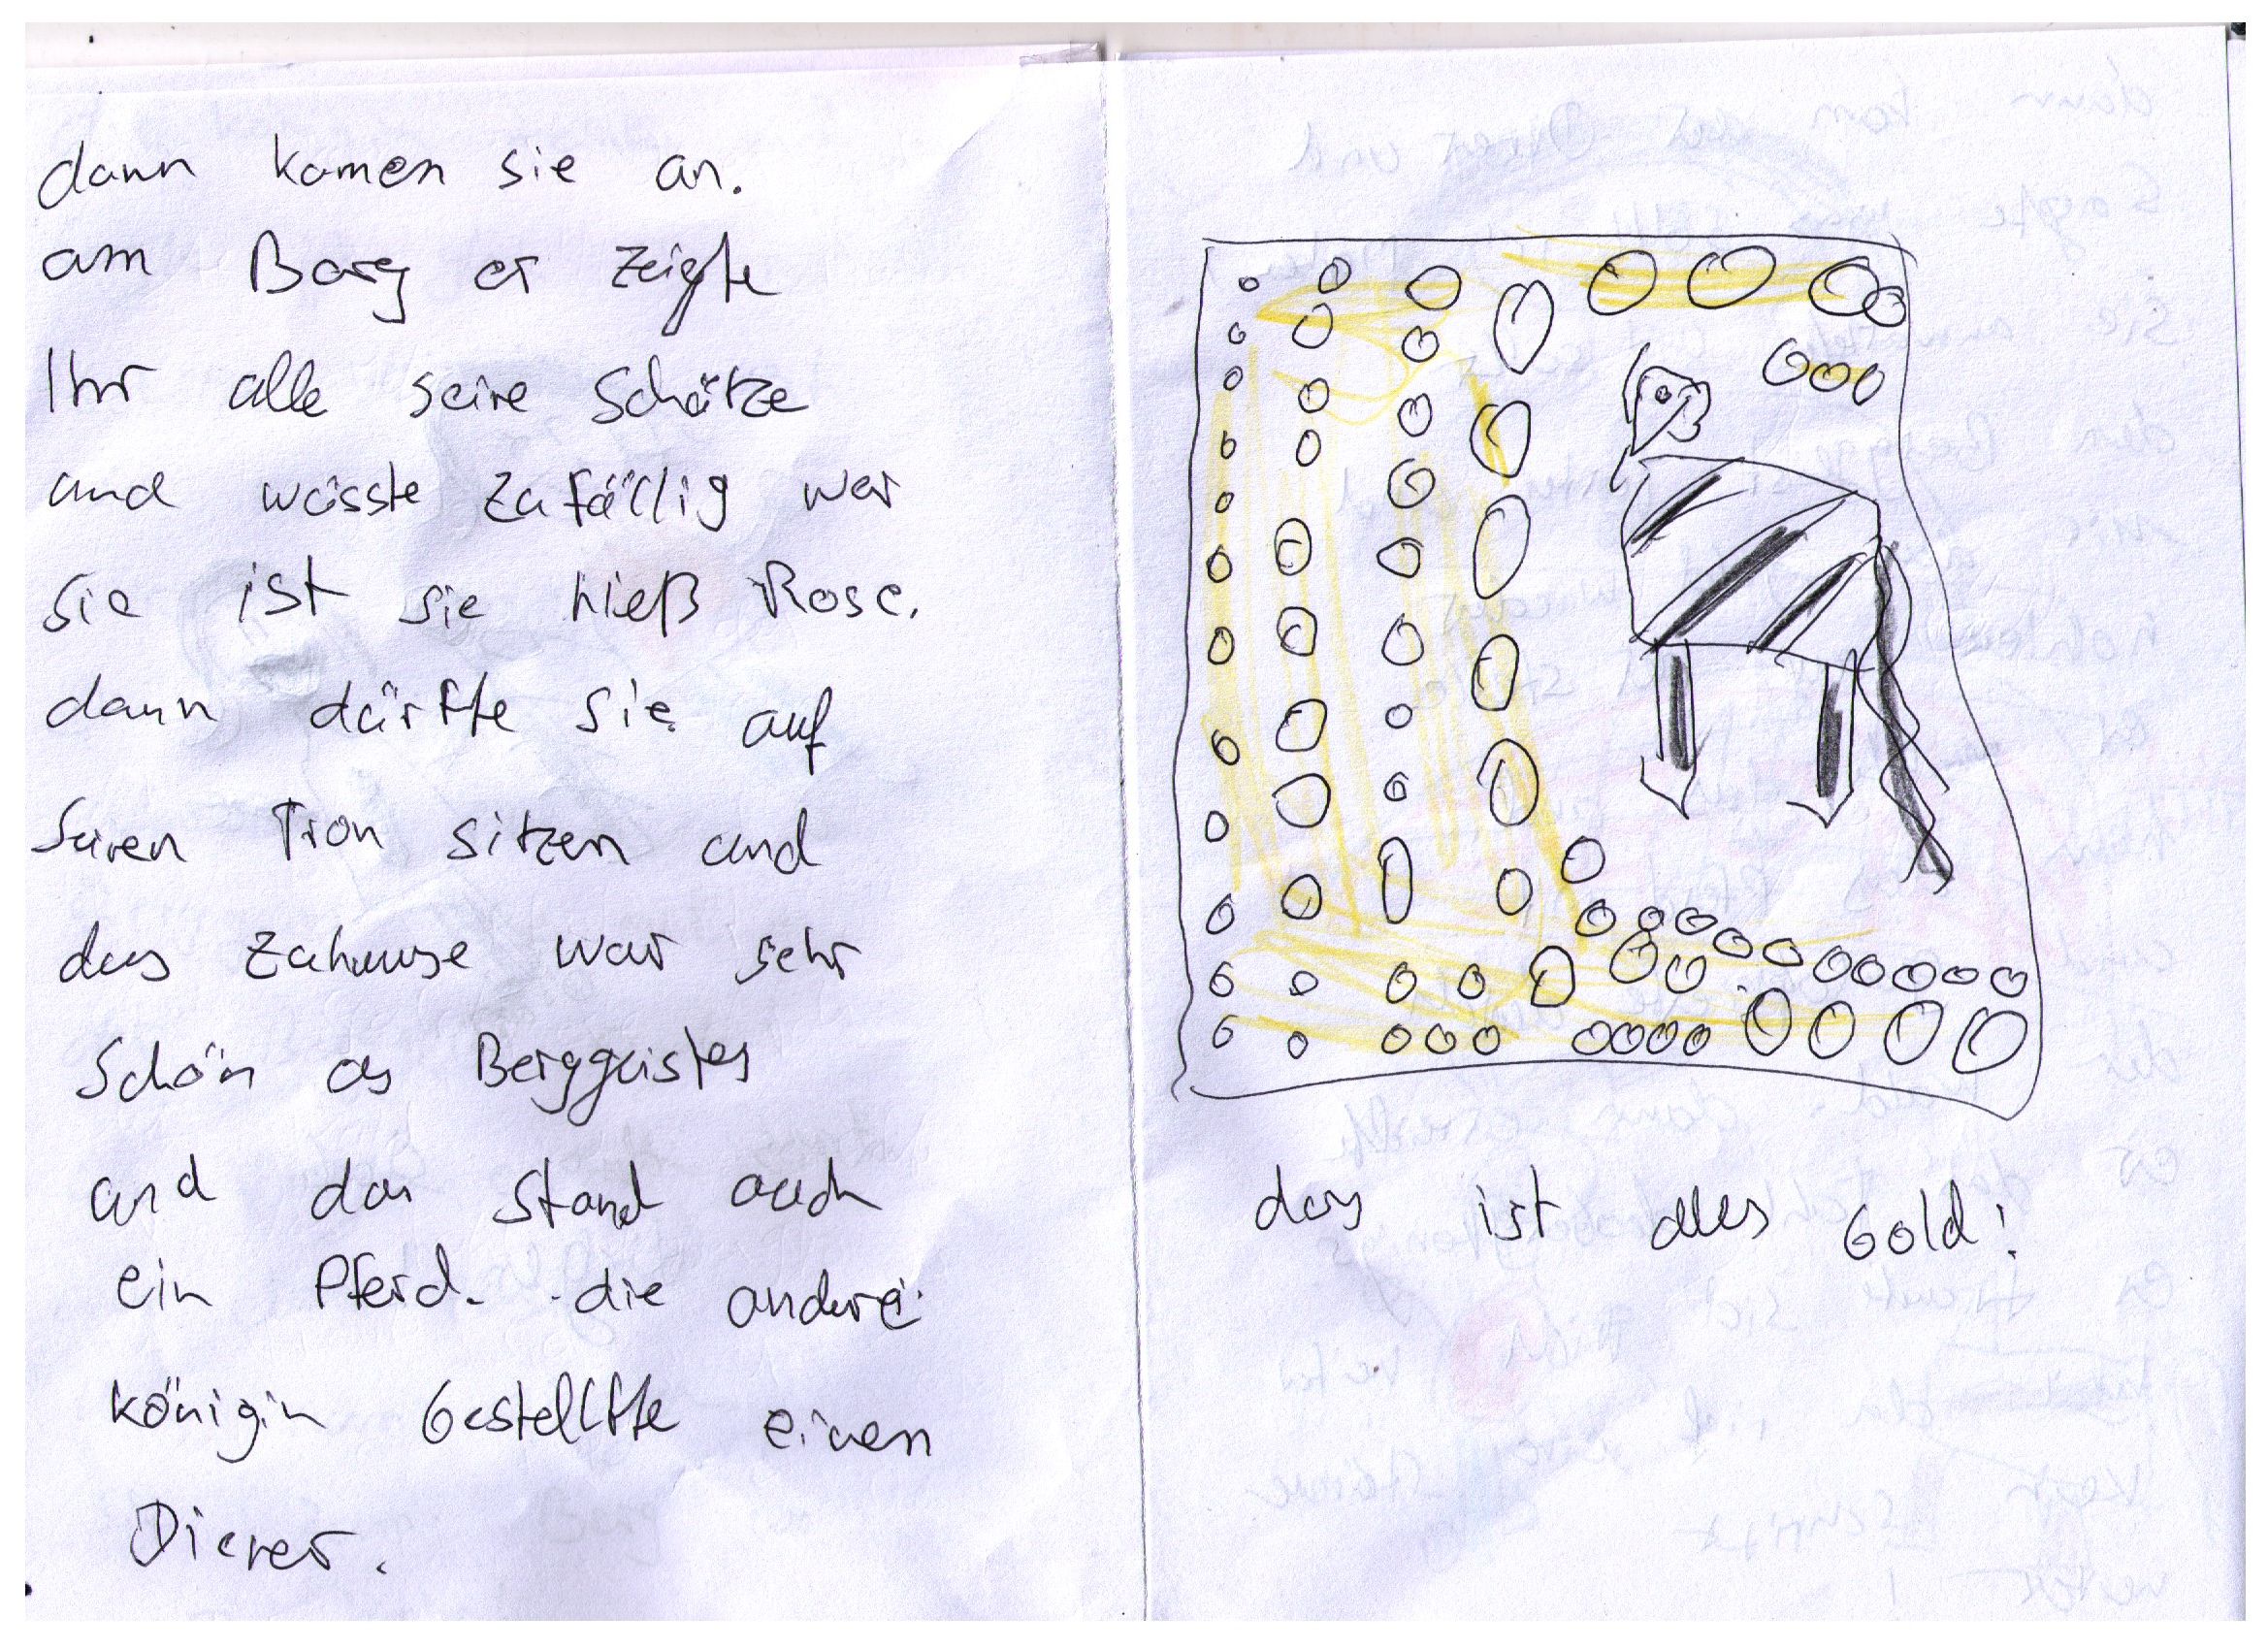 dann kamen sie an.
am Barg er zeigte
Ihr alle seine Schätze
und wüsste zufällig wer
sie ist sie hieß Rose.
dann dürfte sie auf
seinen Tron sitzen und
das Zahuuse war sehr
Schön es Berggeistes
und da Stand auch
ein Pferd. die andere
königin bestellte einen
Diener.
das ist alles Gold!